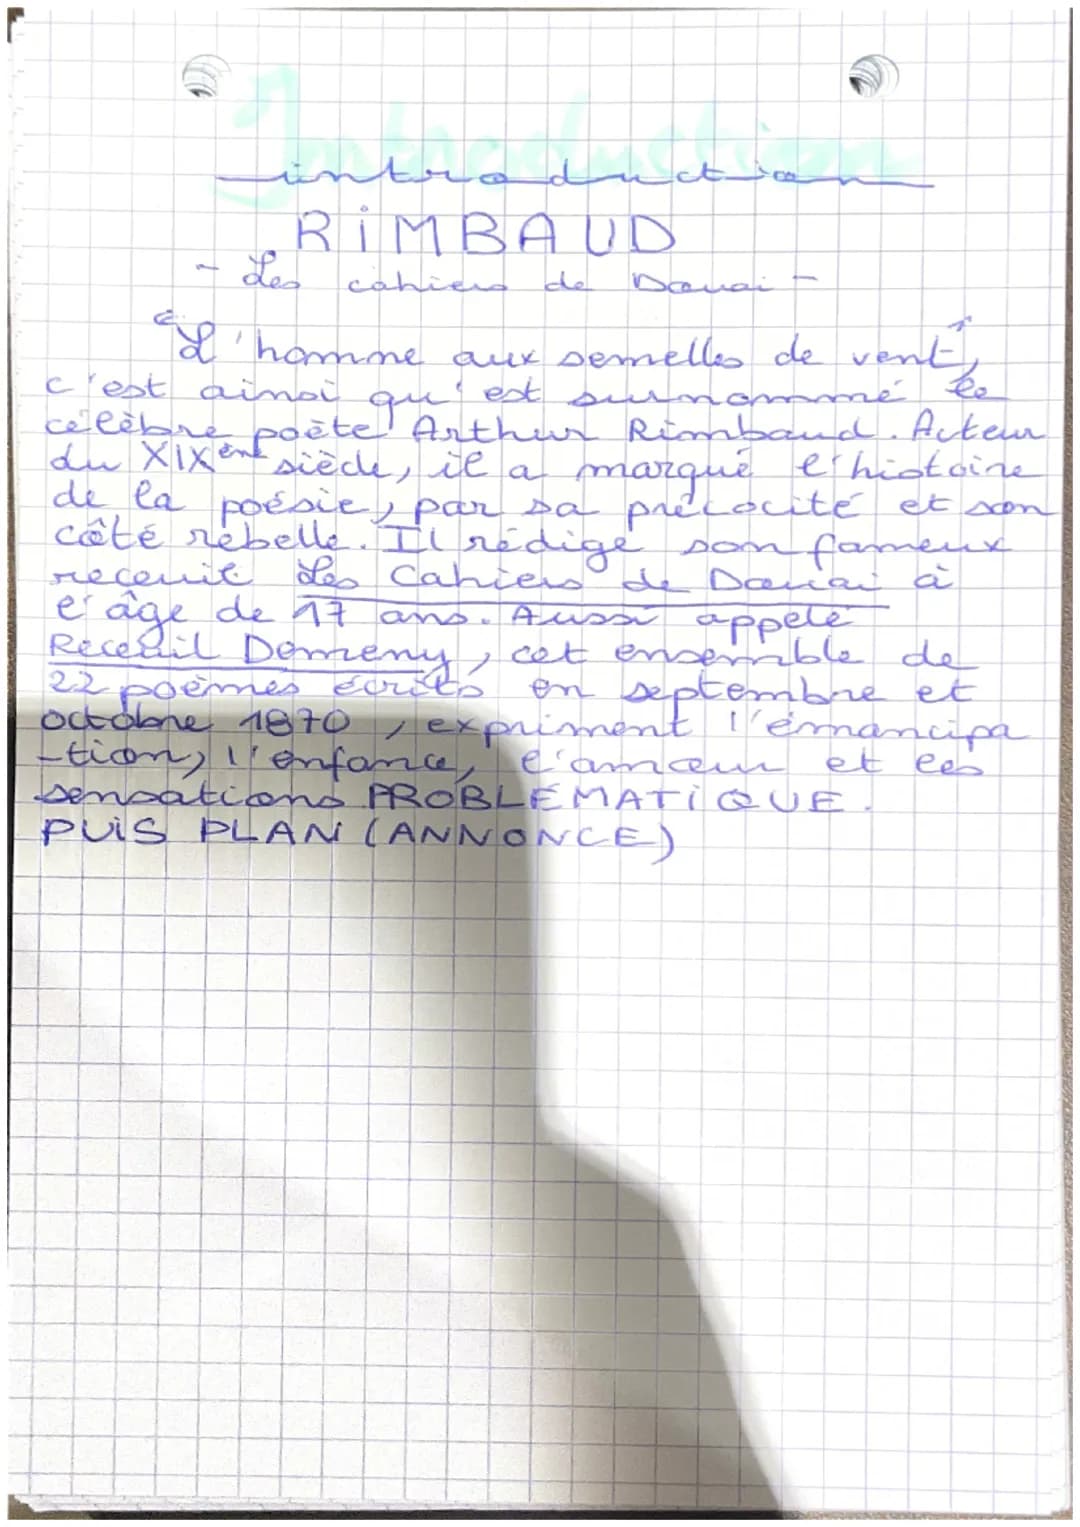 Introduction
introduction
RIMBAUD
- Les cahiers de Douai -
"L'homme aux semelles de vent",
c'est ainsi qu'est surnommé le
célèbre poète Arthur Rimbaud. Acteur
du XIXème siècle, il a marqué l'histoire
de la poésie, par sa précocité et son
côté rebelle. Il rédige son fameux
receuil Les Cahiers de Douai à
l'âge de 17 ans. Aussi appelé
Receuil Demeny, cet ensemble de
22 poèmes écrits en septembre et
octobre 1870, expriment l'émancipa
-tion, l'enfance, l'amour et les
sensations. PROBLÉMATIQUE.
PUIS PLAN (ANNONCE)